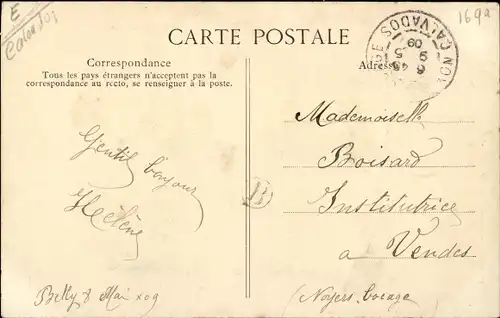 E
Calvados
169a
CARTE POSTALE
Correspondance
Tous les pays étrangers n'acceptent pas la
correspondance au recto, se renseigner à la poste.
Adresse
CALVADOS
6 45
9 5
09
Gentil bonjour
Hélène
Billy 8 Mai 1909
Mademoiselle
Boisard
Institutrice
a Vendes
(Noyers, bocage